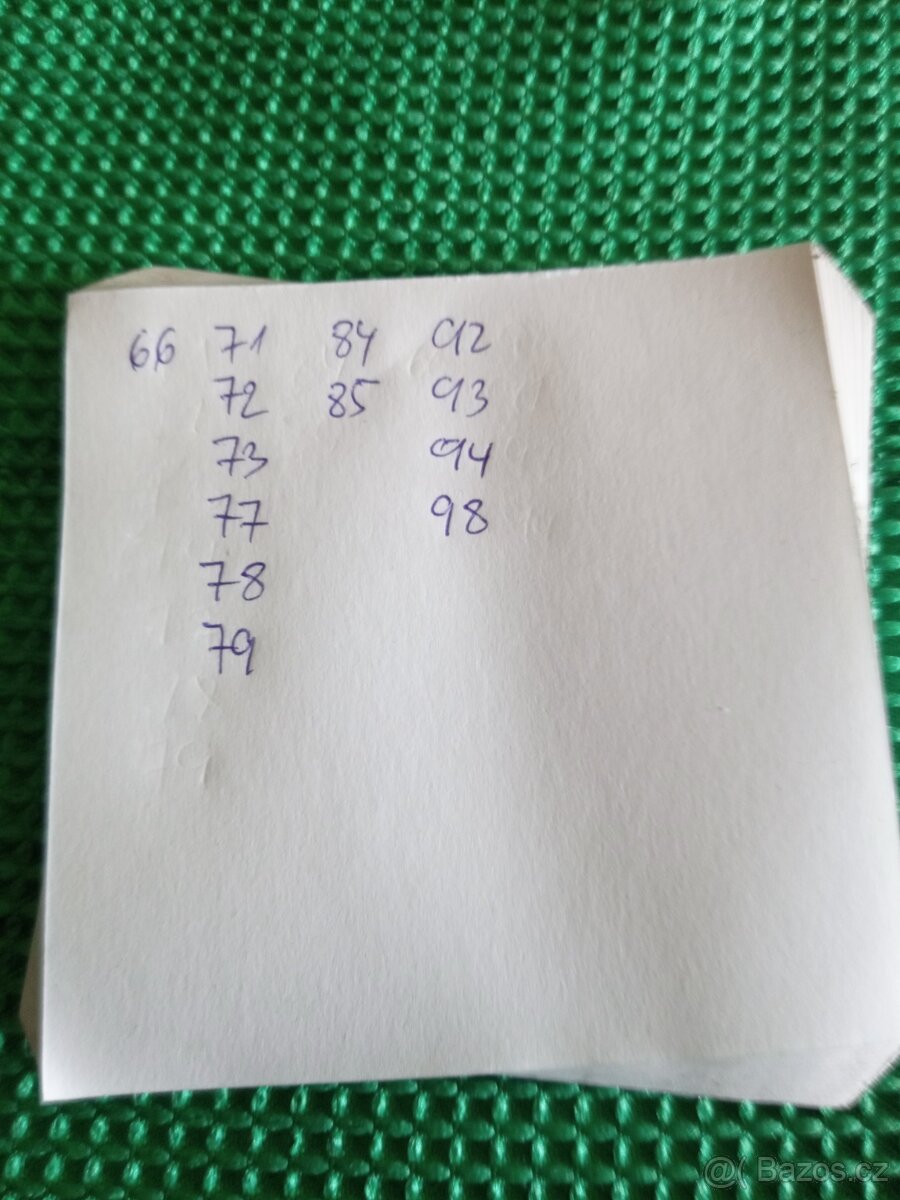 66 71 84 92
72 85 93
73 94
77 98
78
79
@( Bazos.cz